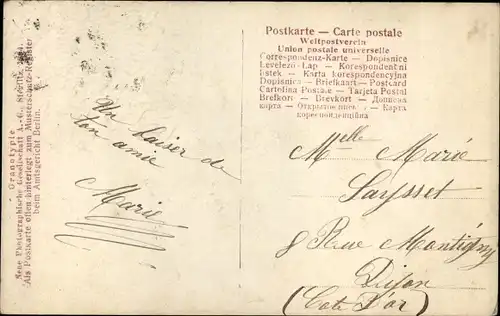 Granotypie
Neue Photographische Gesellschaft A.-G., Steglitz
Als Postkarte offen hinterlegt zum Musterschutz-Register
beim Amtsgericht Berlin.
Un baiser de
ton amie
Marie
Postkarte — Carte postale
Weltpostverein
Union postale universelle
Correspondenz-Karte — Dopisnice
Levelezö-Lap — Korespondentni
listek — Karta korespondencyjna
Dopisnica — Briefkaart — Postcard
Cartolina Postale — Tarjeta Postal
Brefkort — Brevkort — Дописна
карта — Открытое письмо — Карта
кореспонденцийна
Melle Marie
Saysset
8 Rue Montigny
Dijon
(Cote D'or)